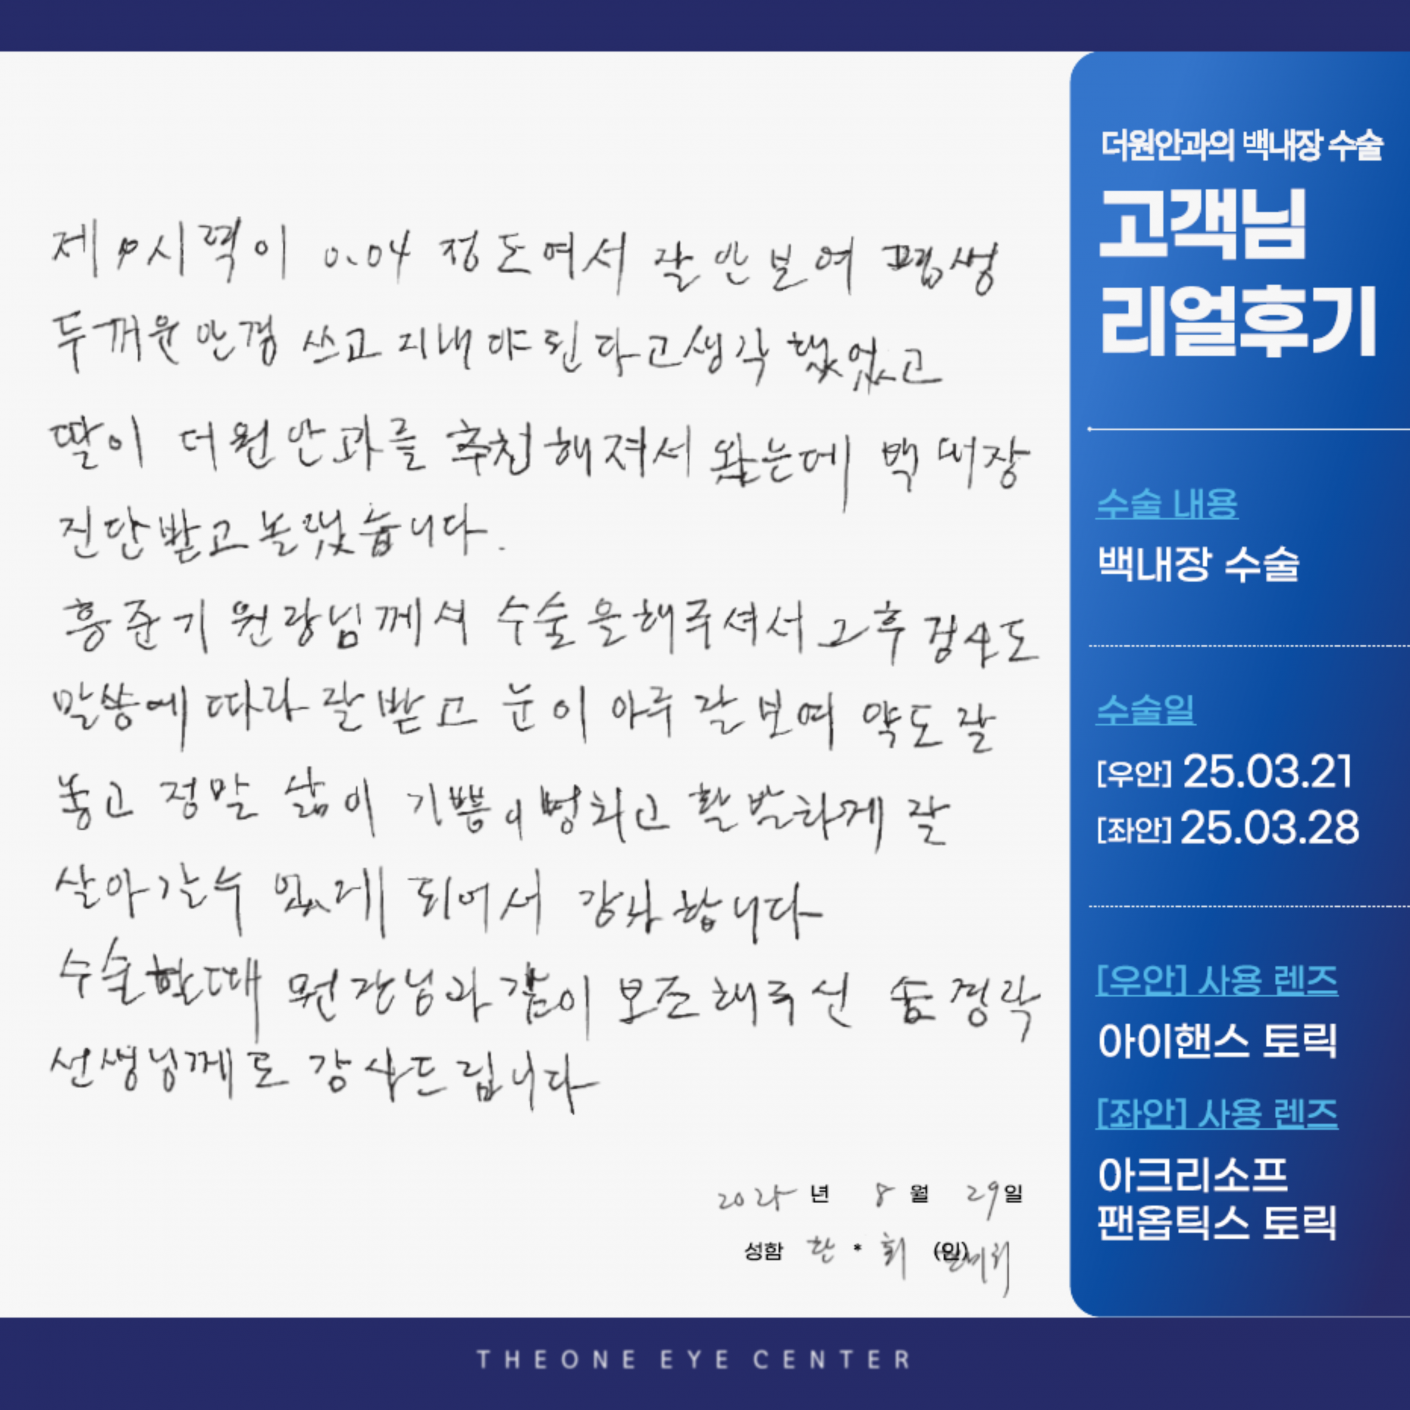 제 시력이 0.04 정도여서 잘 안보여 평생
두꺼운 안경 쓰고 지내야 된다고 생각 했었고
딸이 더원안과를 추천해져서 왔는데 백내장
진단받고 놀랬습니다.
홍준기 원장님께서 수술을 해주셔서 그후 검사도
말씀에 따라 잘 받고 눈이 아주 잘 보여 약도 잘
놓고 정말 삶이 기쁨이 하고 활발하게 잘
살아갈수 있게 되어서 감사합니다
수술할때 원장님과 같이 보조해주신 송정락
선생님께도 감사드립니다
2025년 8월 29일
성함 한 * 희 (인)
더원안과의 백내장 수술
고객님
리얼후기
수술 내용
백내장 수술
수술일
[우안] 25.03.21
[좌안] 25.03.28
[우안] 사용 렌즈
아이핸스 토릭
[좌안] 사용 렌즈
아크리소프
팬옵틱스 토릭
THEONE EYE CENTER